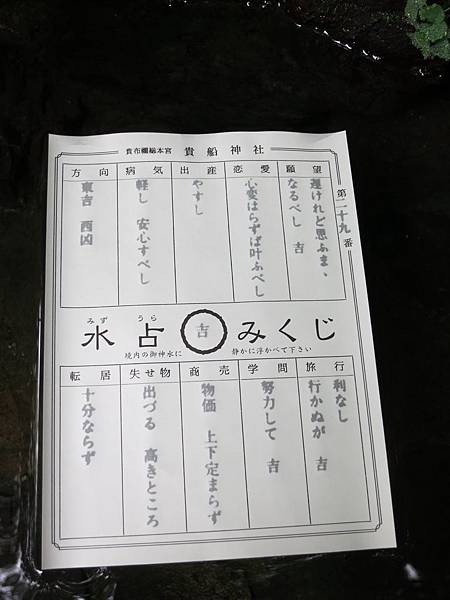 貴布禰総本宮 貴船神社
第二十九番
願望
遅けれど思ふまゝ
なるべし 吉
恋愛
心変はらずば叶ふべし
出産
やすし
病気
軽し 安心すべし
方向
東吉 西凶
みず うら
水占 吉 みくじ
境内の御神水に 静かに浮かべて下さい
旅行
利なし
行かぬが 吉
学問
努力して 吉
商売
物価 上下定まらず
失せ物
出づる 高きところ
転居
十分ならず